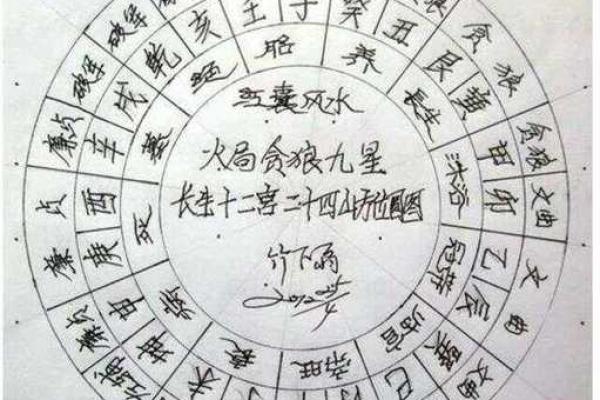 囊风水
火局贪狼九星
长生十二宫二十四山方位图
竹下雨
胎
养
長生
沐浴
冠带
临官
帝旺
衰
病
死
墓
绝
壬
子
癸
丑
艮
寅
甲
卯
乙
辰
巽
巳
未
坤
申
庚
酉
辛
戌
乾
亥
狼
贪狼
贪狼
文曲
文
曲
文曲
廉贞
廉
贞
廉贞
破军
破军